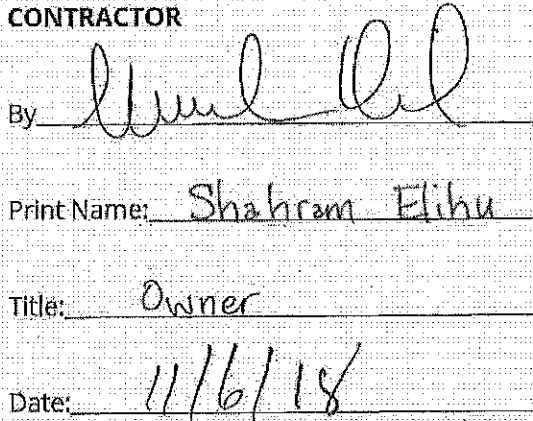 CONTRACTOR
By
Print Name: Shahram Elihu
Title: Owner
Date: 11/6/18